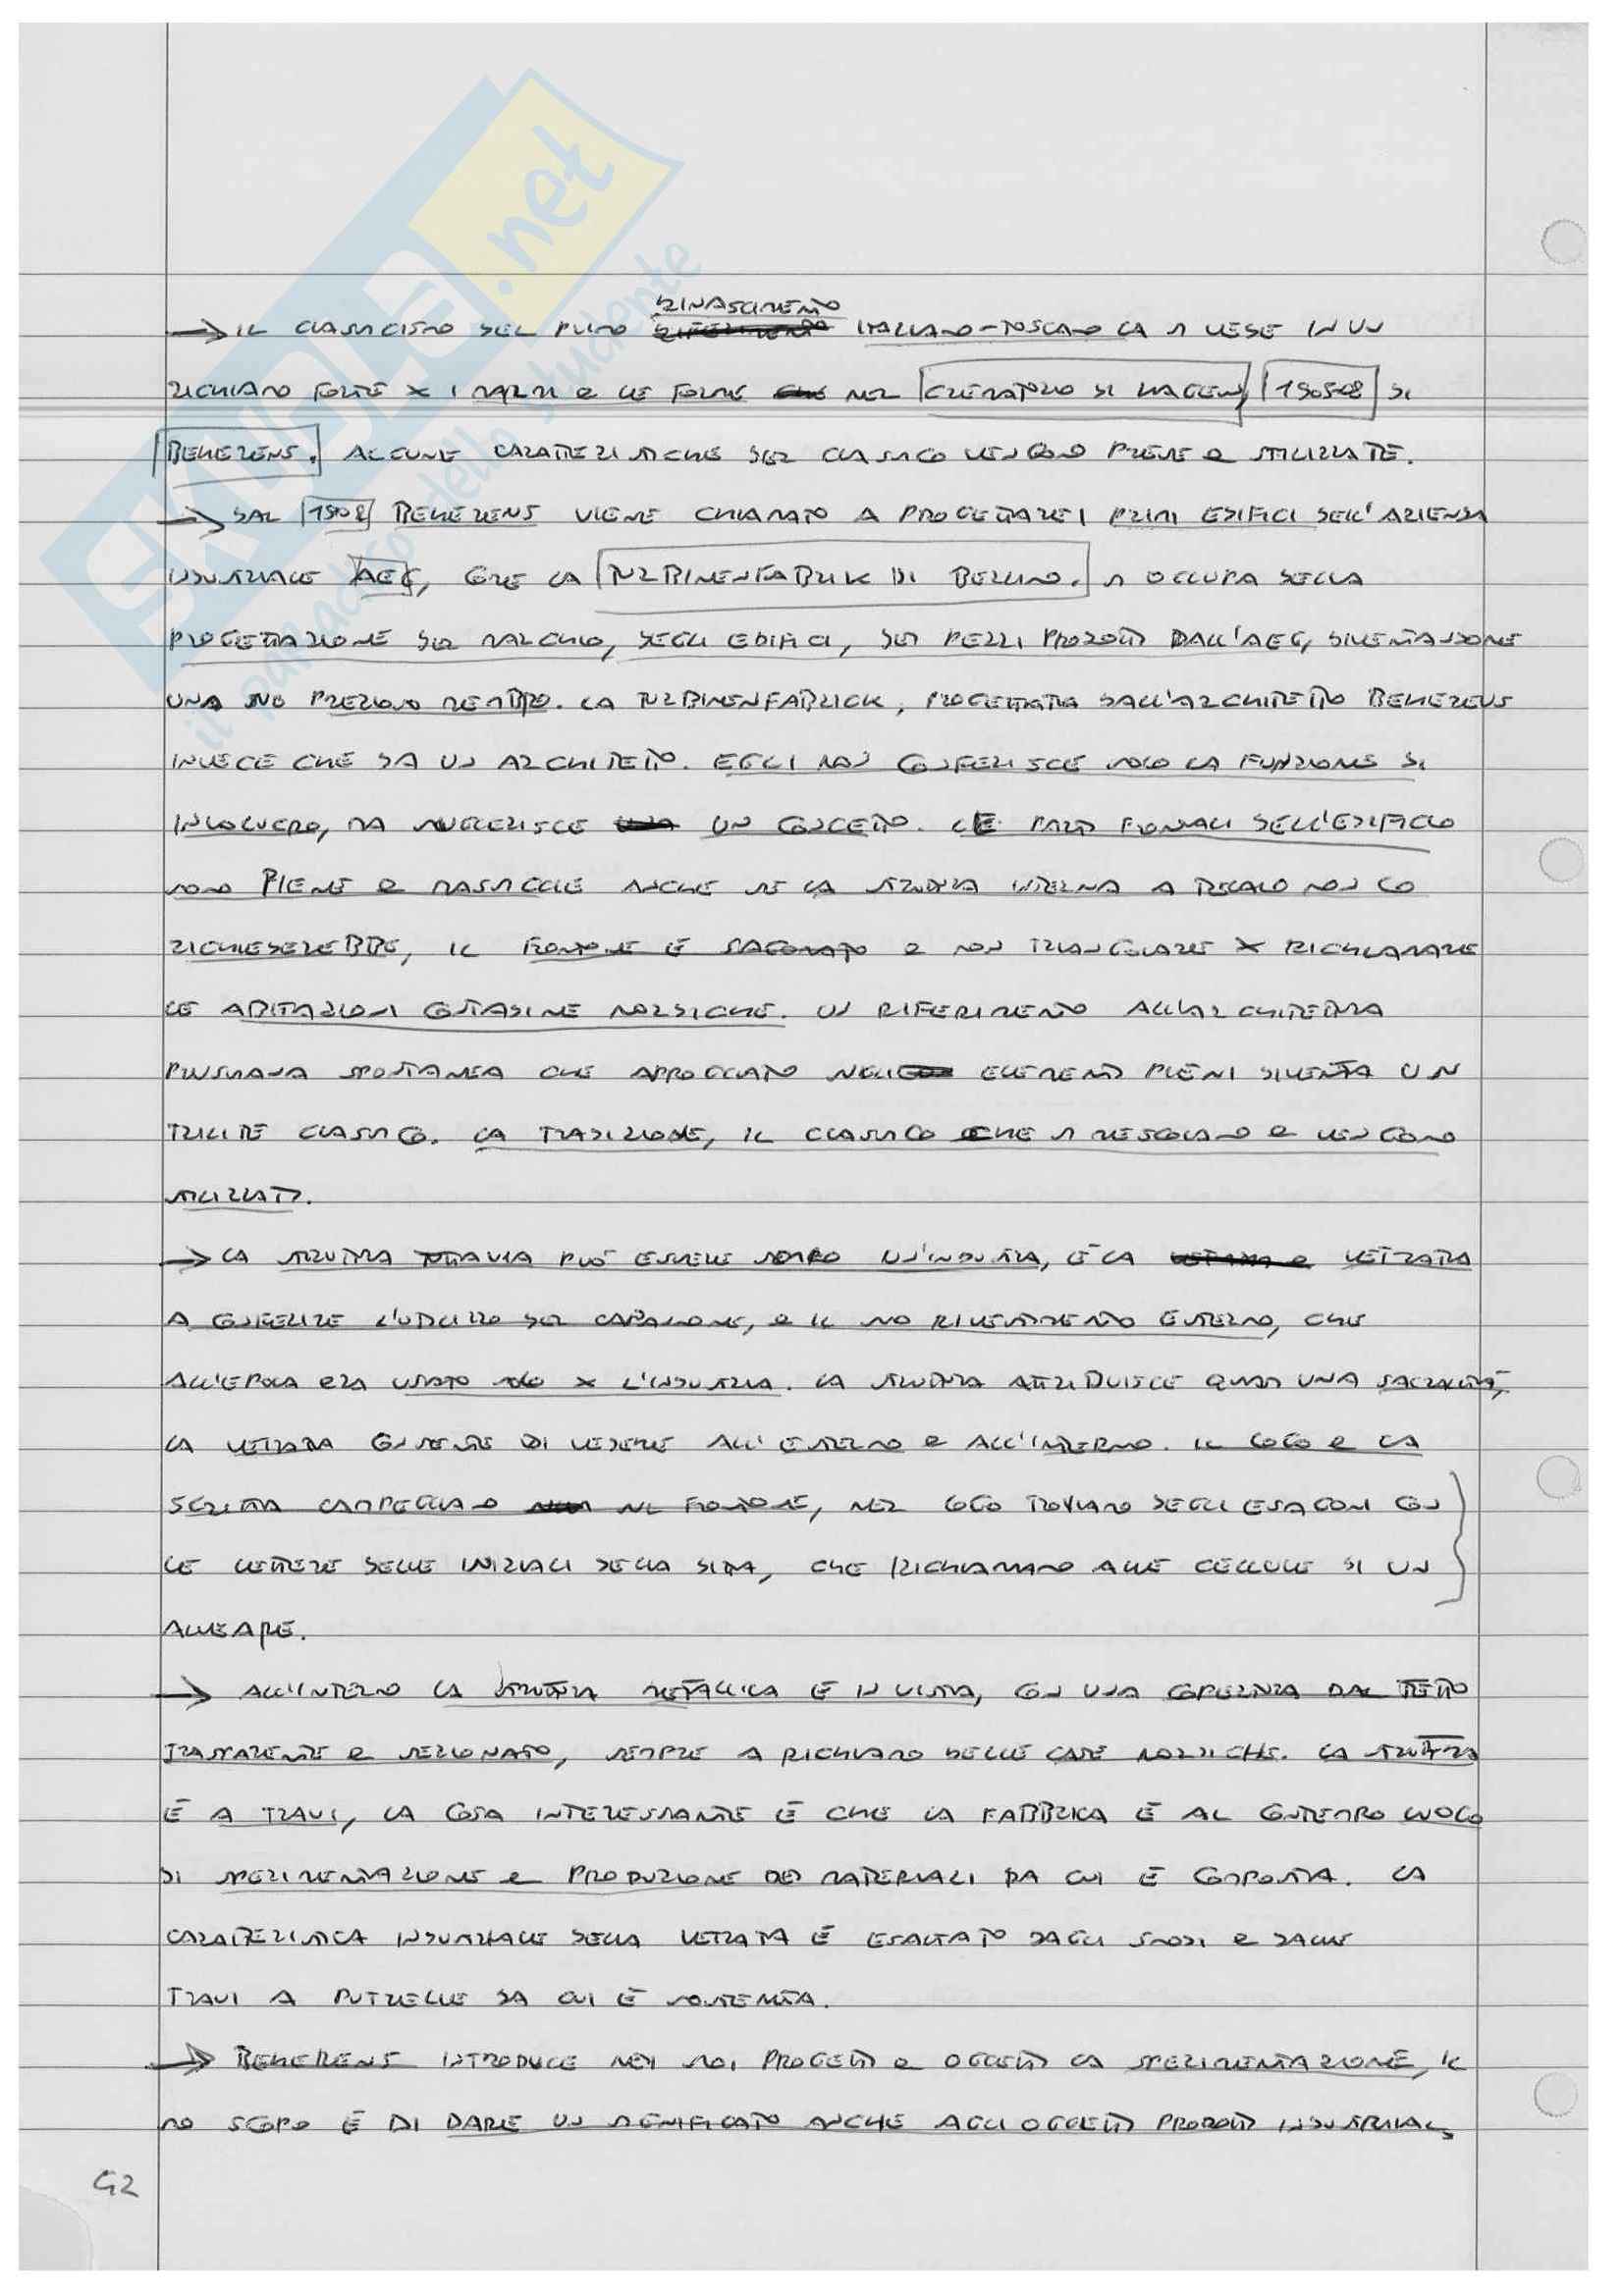 SKUOLA.net
il paradiso dello studente
RINASCIMENTO
→ IL CLASSICISMO DEL PRIMO ITALIANO-TOSCANO LA SI VEDE IN UN
RICHIAMO FORTE X I MARMI E LE FORME NEL CREMATORIO DI HAGEN, DI
BEHERENS. ALCUNE CARATTERISTICHE DEL CLASSICO VENGONO PRESE E STILIZZATE.
→ DAL 1908 BEHERENS VIENE CHIAMATO A PROGETTARE I PRIMI EDIFICI DELL'AZIENDA
INDUSTRIALE AEG, COME LA TURBINENFABRIK DI BERLINO. SI OCCUPA DELLA
PROGETTAZIONE DEL MARCHIO, DEGLI EDIFICI, DEI PEZZI PRODOTTI DALL'AEG, DIVENTANDONE
UNA SUO PREZIOSO MEMBRO. LA TURBINENFABRICK, PROGETTATA DALL'ARCHITETTO BEHERENS
INVECE CHE DA UN ARCHITETTO. EGLI NON CONFERISCE SOLO LA FUNZIONE DI
INVOLUCRO, MA SUGGERISCE UN CONCETTO. LE PARTI FRONTALI DELL'EDIFICIO
SONO PIENE E MASSICCE ANCHE SE LA STRUTTURA INTERNA A TELAIO NON LO
RICHIEDEREBBE, IL FRONTONE È SAGOMATO E NON TRIANGOLARE X RICHIAMARE
LE ABITAZIONI CONTADINE NORDICHE. UN RIFERIMENTO ALL'ARCHITETTURA
PRUSSIANA SPONTANEA CHE APPOGGIATO SUGLI ELEMENTI PIENI DIVENTA UN
TRILITE CLASSICO. LA TRADIZIONE, IL CLASSICO CHE SI MESCOLANO E VENGONO
STILIZZATI.
→ LA STRUTTURA TUTTAVIA PUÒ ESSERE SOLO UN'INDUSTRIA, È LA VETRATA
A CONFERIRE L'UTILIZZO DEL CAPANNONE, E IL SUO RIVESTIMENTO ESTERNO, CHE
ALL'EPOCA ERA USATO SOLO X L'INDUSTRIA. LA STRUTTURA ATTRIBUISCE QUASI UNA SACRALITÀ,
LA VETRATA CONSENTE DI VEDERE ALL'ESTERNO E ALL'INTERNO. IL LOGO E LA
SCRITTA CAMPEGGIANO SUL FRONTONE, NEL LOGO TROVIAMO DEGLI ESAGONI CON
LE LETTERE DELLE INIZIALI DELLA DITTA, CHE RICHIAMANO ALLE CELLULE DI UN
ALVEARE.
→ ALL'INTERNO LA STRUTTURA METALLICA È IN VISTA, CON UNA COPERTURA DAL TETTO
TRASPARENTE E SEZIONATO, SEMPRE A RICHIAMO DELLE CASE NORDICHE. LA STRUTTURA
È A TRAVI, LA COSA INTERESSANTE È CHE LA FABBRICA È AL CONTEMPO LUOGO
DI SPERIMENTAZIONE E PRODUZIONE DEI MATERIALI DA CUI È COMPOSTA. LA
CARATTERISTICA INDUSTRIALE DELLA VETRATA È ESALTATO DAGLI SNODI E DALLE
TRAVI A PUTRELLE DA CUI È SOSTENUTA.
→ BEHERENS INTRODUCE NEI SUOI PROGETTI E OGGETTI LA SPERIMENTAZIONE, IL
SUO SCOPO È DI DARE UN SIGNIFICATO ANCHE AGLI OGGETTI PRODOTTI INDUSTRIAL,
42